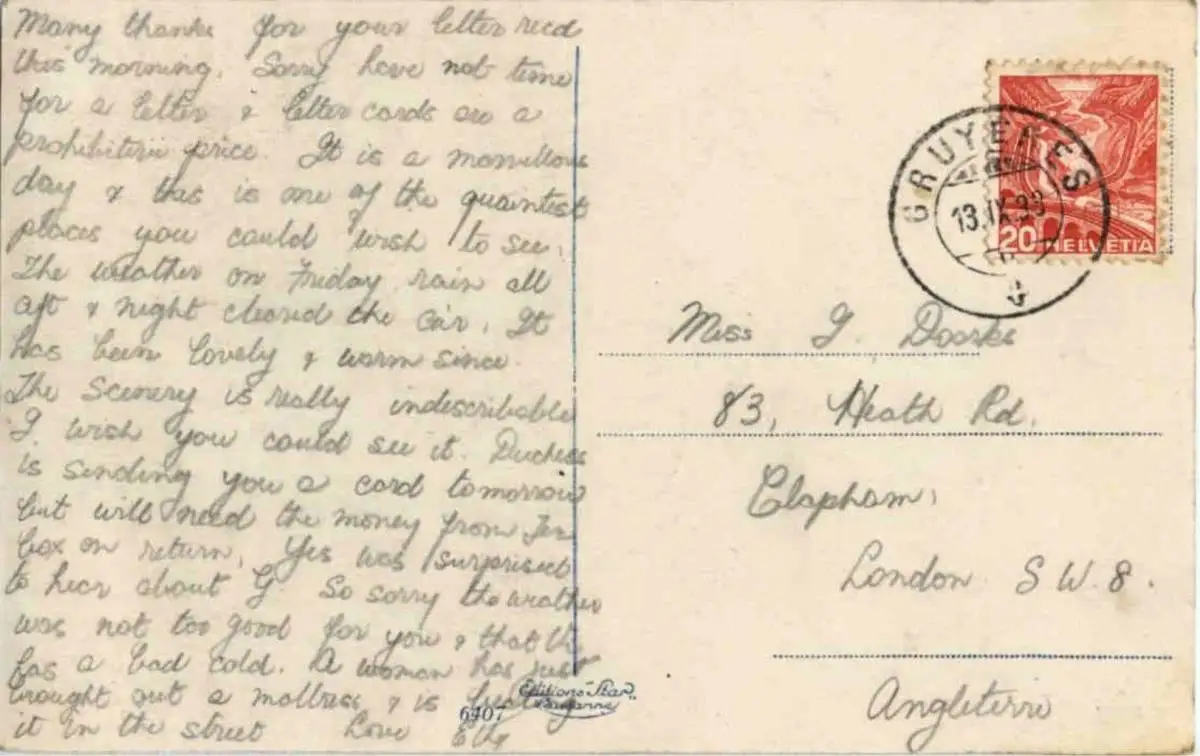 Many thanks for your letter recd
this morning. Sorry have not time
for a letter & letter cards are a
prohibitive price. It is a marvellous
day & this is one of the quaintest
places you could wish to see.
The weather on Friday, rain all
aft & night cleared the air. It
has been lovely & warm since.
The scenery is really indescribable
I wish you could see it. Duchess
is sending you a card tomorrow
but will need the money from
box on return. Yes was surprised
to hear about G. So sorry the weather
was not too good for you & that
has a bad cold. A woman has just
brought out a mattress & is
it in the street Love
GRUYERES
13.IX.38
20 HELVETIA
Miss G.
83, Heath Rd.
Clapham,
London S W. 8.
Angleterre
6407
Editions "Star"
Lausanne